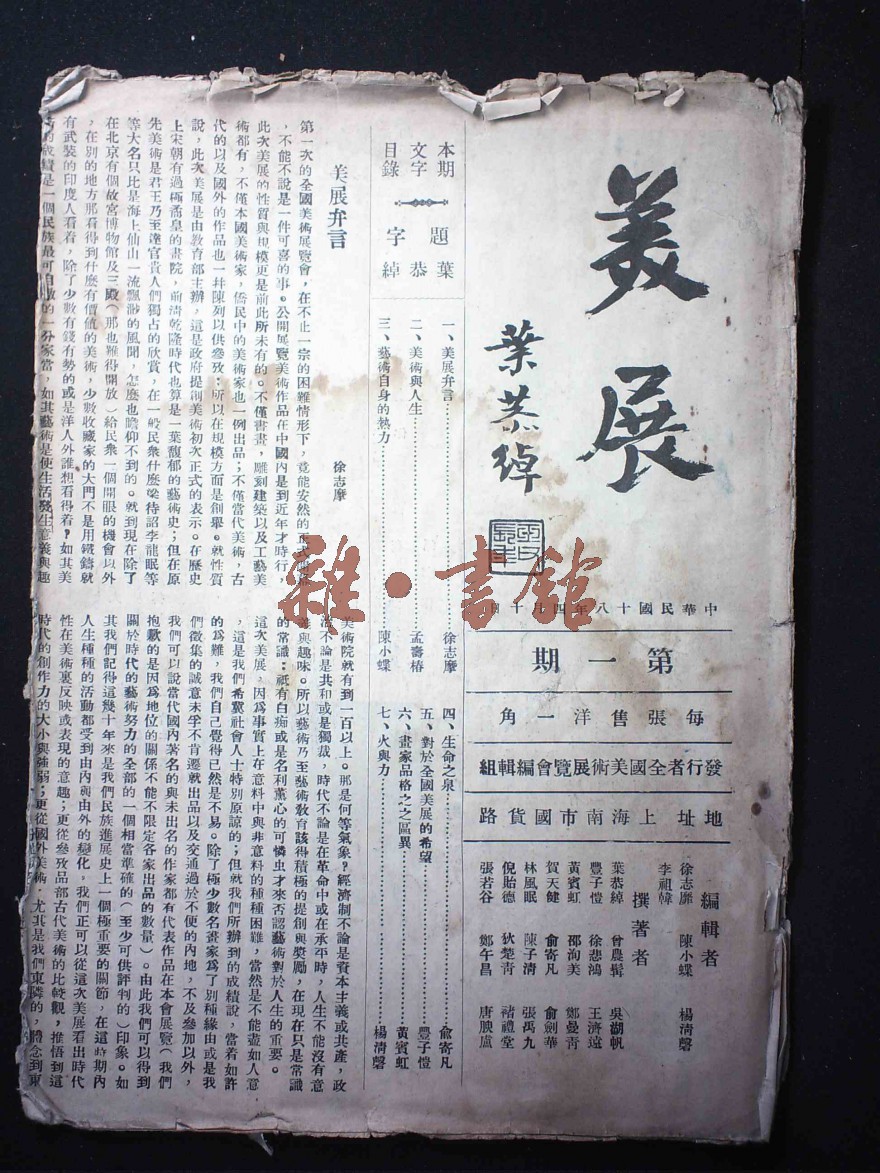 美展
葉恭綽
中華民國十八年四月十日
第一期
每張售洋一角
發行者全國美術展覽會編輯組
地址上海南市國貨路
編輯者
徐志摩 陳小蝶 楊清磬
李祖韓
撰著者
葉恭綽 曾農髯 吳湖帆
豐子愷 徐悲鴻 王濟遠
黃賓虹 邵洵美 鄭曼青
賀天健 俞寄凡 俞劍華
林風眠 陳子清 張禹九
倪貽德 狄楚青 褚禮堂
張若谷 鄭午昌 唐腴盧
本期文字目錄
題字
葉恭綽
一、美展弁言 徐志摩
二、美術與人生 孟壽椿
三、藝術自身的熱力 陳小蝶
四、生命之泉 俞寄凡
五、對於全國美展的希望 豐子愷
六、畫家品格之之區異 黃賓虹
七、火與力 楊清磬
美展弁言
徐志摩
第一次的全國美術展覽會，在不止一宗的困難情形下，竟能安然的正式
，不能不說是一件可喜的事。公開展覽美術作品在中國內是到近年才時行，
此次美展的性質與規模更是前此所未有的。不僅書畫，雕刻建築以及工藝美
術都有，不僅本國美術家，僑民中的美術家也一例出品；不僅當代美術，古
代的以及國外的作品也一幷陳列以供參攷；所以在規模方面是創舉。就性質
說，此次美展是由教育部主辦，這是政府提創美術初次正式的表示。在歷史
上宋朝有過極喬皇的書院，前清乾隆時代也算是一葉馥郁的藝術史；但在原
先美術是君王乃至達官貴人們獨占的欣賞，在一般民衆什麼梁待詔李龍眠等
等大名只比是海上仙山一流飄渺的風聞，怎麼也瞻仰不到的。就到現在除了
在北京有個故宮博物館及三殿（那也難得開放）給民衆一個開眼的機會以外
，在別的地方那看得到什麼有價值的美術，少數收藏家的大門不是用鐵鑄就
有武裝的印度人看着，除了少數有錢有勢的或是洋人外誰想看得着？如其美
的成績是一個民族最可自傲的一分家當，如其藝術是使生活發生意義與趣
美術院就有到一百以上。那是何等氣象？經濟制不論是資本主義或共產，政
治不論是共和或是獨裁，時代不論是在革命中或在承平時，人生不能沒有意
義與趣味。所以藝術乃至藝術敎育該得積極的提創與奬勵，在現在只是常識
的常識；祇有白痴或是名利薰心的可憐虫才來否認藝術對於人生的重要。
這次美展，因爲事實上在意料中與非意料的種種困難，當然是不能盡如人意
，這是我們希冀社會人士特別原諒的；但就我們所辦到的成績說，當着如許
的爲難，我們自己覺得已然是不易。除了極少數名畫家爲了別種緣由或是我
們徵集的誠意未孚不肯遷就出品以及交通過於不便的內地，不及參加以外，
我們可以說當代國內著名的與未出名的作家都有代表作品在本會展覽（我們
抱歉的是因爲地位的關係不能不限定各家出品的數量）。由此我們可以得到
關於時代的藝術努力的全部的一個相當準確的（至少可供評判的）印象。如
其我們記得這幾十年來是我們民族進展史上一個極重要的關節，在這時期內
人生種種的活動都受到由內與由外的變化，我們正可以從這次美展看出時代
性在美術裏反映或表現的意趣；更從參攷品部古代美術的比較觀，推悟到這
時代的創作力的大小與强弱；更從國外美術，尤其是我們東隣的，體念到東
雜·書館